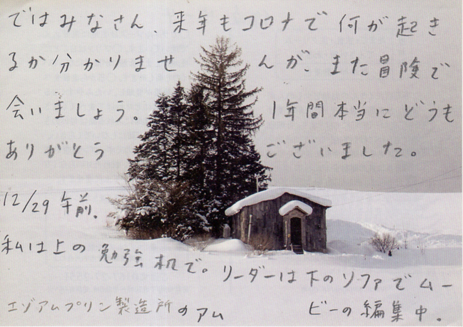 ではみなさん、来年もコロナで何が起き
るか分かりませんが、また冒険で
会いましょう。1年間本当にどうも
ありがとうございました。
12/29 午前.
私は上の勉強机で。リーダーは下のソファでムー
エゾアムプリン製造所のアム ビーの編集中。